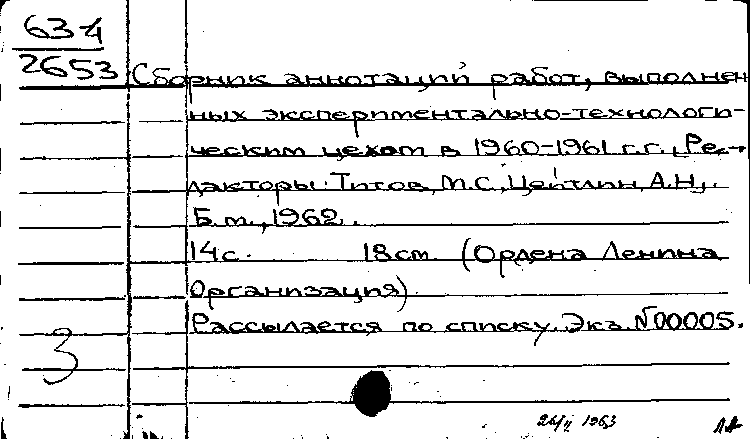 63-4
2653 Сборник аннотаций работ, выполнен
ных экспериментально-технологи-
ческим цехом в 1960-1961 г.г., Ре-
дакторы: Титов, М.С., Цейтлин, А.Н,.
Б.м., 1962.
14с. 18см. (Ордена Ленина
Организация)
Рассылается по списку. Экз. №00005.
3
1963